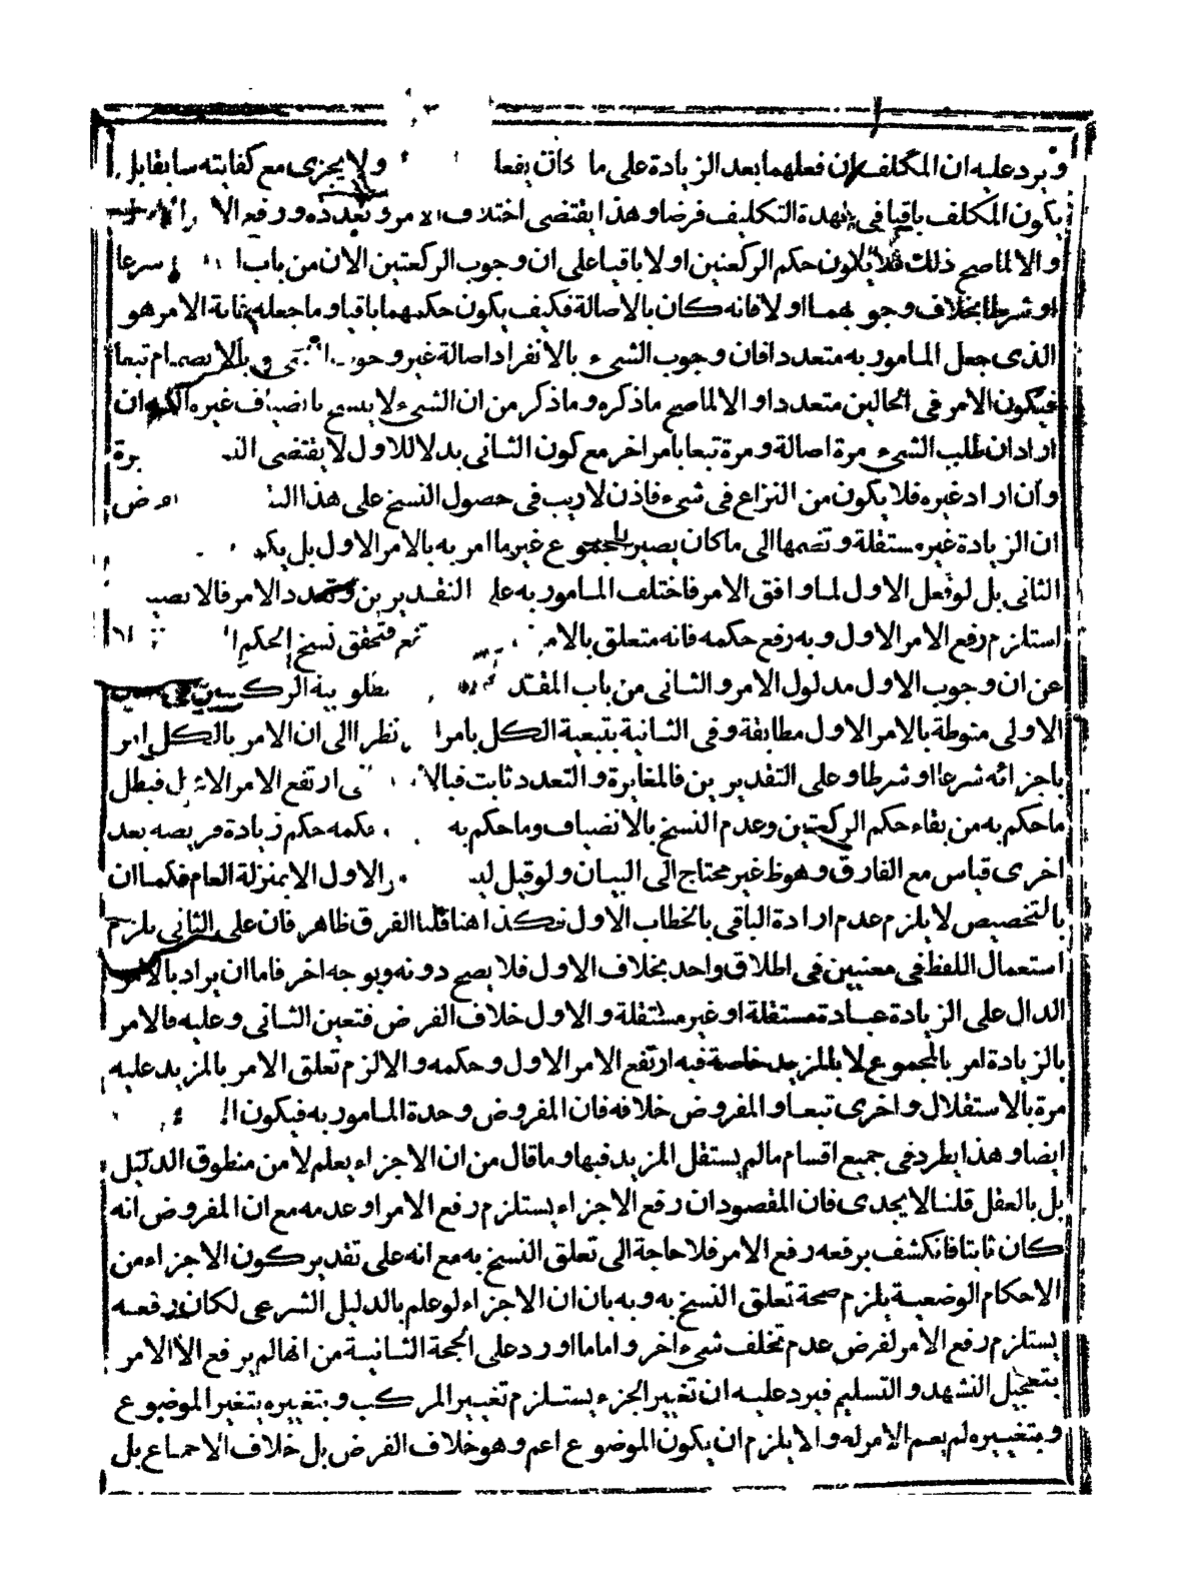 ويرد عليه ان المكلف ان فعلهما بعد الزيادة على ما كان يفعل ولا يجزى مع كفايته سابقا بل
يكون المكلف باقيا في عهدة التكليف فرضا وهذا يقتضى اختلاف الامر وتعدده ورفع الا
والا لما صح ذلك فلا يكون حكم الركعتين اولا باقيا على ان وجوب الركعتين الان من باب سرعا
او شرطا بخلاف وجوبهما اولا فانه كان بالاصالة فكيف يكون حكمهما باقيا وما جعله بمثابة الامر هو
الذى جعل المامور به متعددا فان وجوب الشيء بالانفراد اصالة غير وجو وبالانضمام تبعا
فيكون الامر في الحالين متعددا والا لما صح ما ذكره وما ذكر من ان الشيء لا ينسخ بانضياف غيره اليه ان
اراد ان طلب الشيء مرة اصالة ومرة تبعا بامر اخر مع كون الثانى بدلا للاول لا يقتضى برة
وان اراد غيره فلا يكون من النزاع في شيء فاذن لا ريب في حصول النسخ على هذا
ان الزيادة غير مستقلة وتضمها الى ما كان يصير المجموع غير ما امر به بالامر الاول بل
الثانى بل لو فعل الاول لما وافق الامر فاختلف المامور به على التقديرين وتعدد الامر فالا
استلزم رفع الامر الاول وبه رفع حكمه فانه متعلق بالامر فتحقق نسخ الحكم
عن ان وجوب الاول مدلول الامر والثانى من باب المقد
الاولى منوطة بالامر الاول مطابقة وفي الثانية بتبعية الكل بامر نظرا الى ان الامر بالكل امر
باجزائه شرعا او شرطا وعلى التقديرين فالمغايرة والتعدد ثابت فبالا ارتفع الامر الاول فبطل
ما حكم به من بقاء حكم الركعتين وعدم النسخ بالانضياف وما حكم به حكمه حكم زيادة فريضه بعد
اخرى قياس مع الفارق وهو ظ غير محتاج الى البيان ولو قيل الاول الا بمنزلة العام فكما ان
بالتخصيص لا يلزم عدم ارادة الباقى بالخطاب الاول فكذا هنا قلنا الفرق ظاهر فان على الثاني يلزم
استعمال اللفظ في معنيين في اطلاق واحد بخلاف الاول فلا يصح دونه وبوجه اخر فاما ان يراد بالامر
الدال على الزيادة عبادة مستقلة او غير مستقلة والاول خلاف الفرض فتعين الثانى وعليه فالامر
بالزيادة امر بالمجموع لا بالمزيد خاصة فبه ارتفع الامر الاول وحكمه والا لزم تعلق الامر بالمزيد عليه
مرة بالاستقلال واخرى تبعا والمفروض خلافه فان المفروض وحدة المامور به فيكون
ايضا وهذا يطرد في جميع اقسام ما لم يستقل المزيد فيها وما قال من ان الاجزاء يعلم لا من منطوق الدليل
بل بالعقل قلنا لا يجدى فان المقصود ان رفع الاجزاء يستلزم رفع الامر او عدمه مع ان المفروض انه
كان ثابتا فانكشف برفعه رفع الامر فلا حاجة الى تعلق النسخ به مع انه على تقدير كون الاجزاء من
الاحكام الوضعية يلزم صحة تعلق النسخ به وبه بان ان الاجزاء لو علم بالدليل الشرعى لكان رفعه
يستلزم رفع الامر لفرض عدم تخلف شيء اخر واما ما اورد على الحجة الثانية من انها لم يرفع الا الامر
بتعجيل التشهد والتسليم فيرد عليه ان تغيير الجزء يستلزم تغيير المركب وبتغييره يتغير الموضوع
وبتغييره لم يعم الامر له والا يلزم ان يكون الموضوع اعم وهو خلاف الفرض بل خلاف الاجماع بل